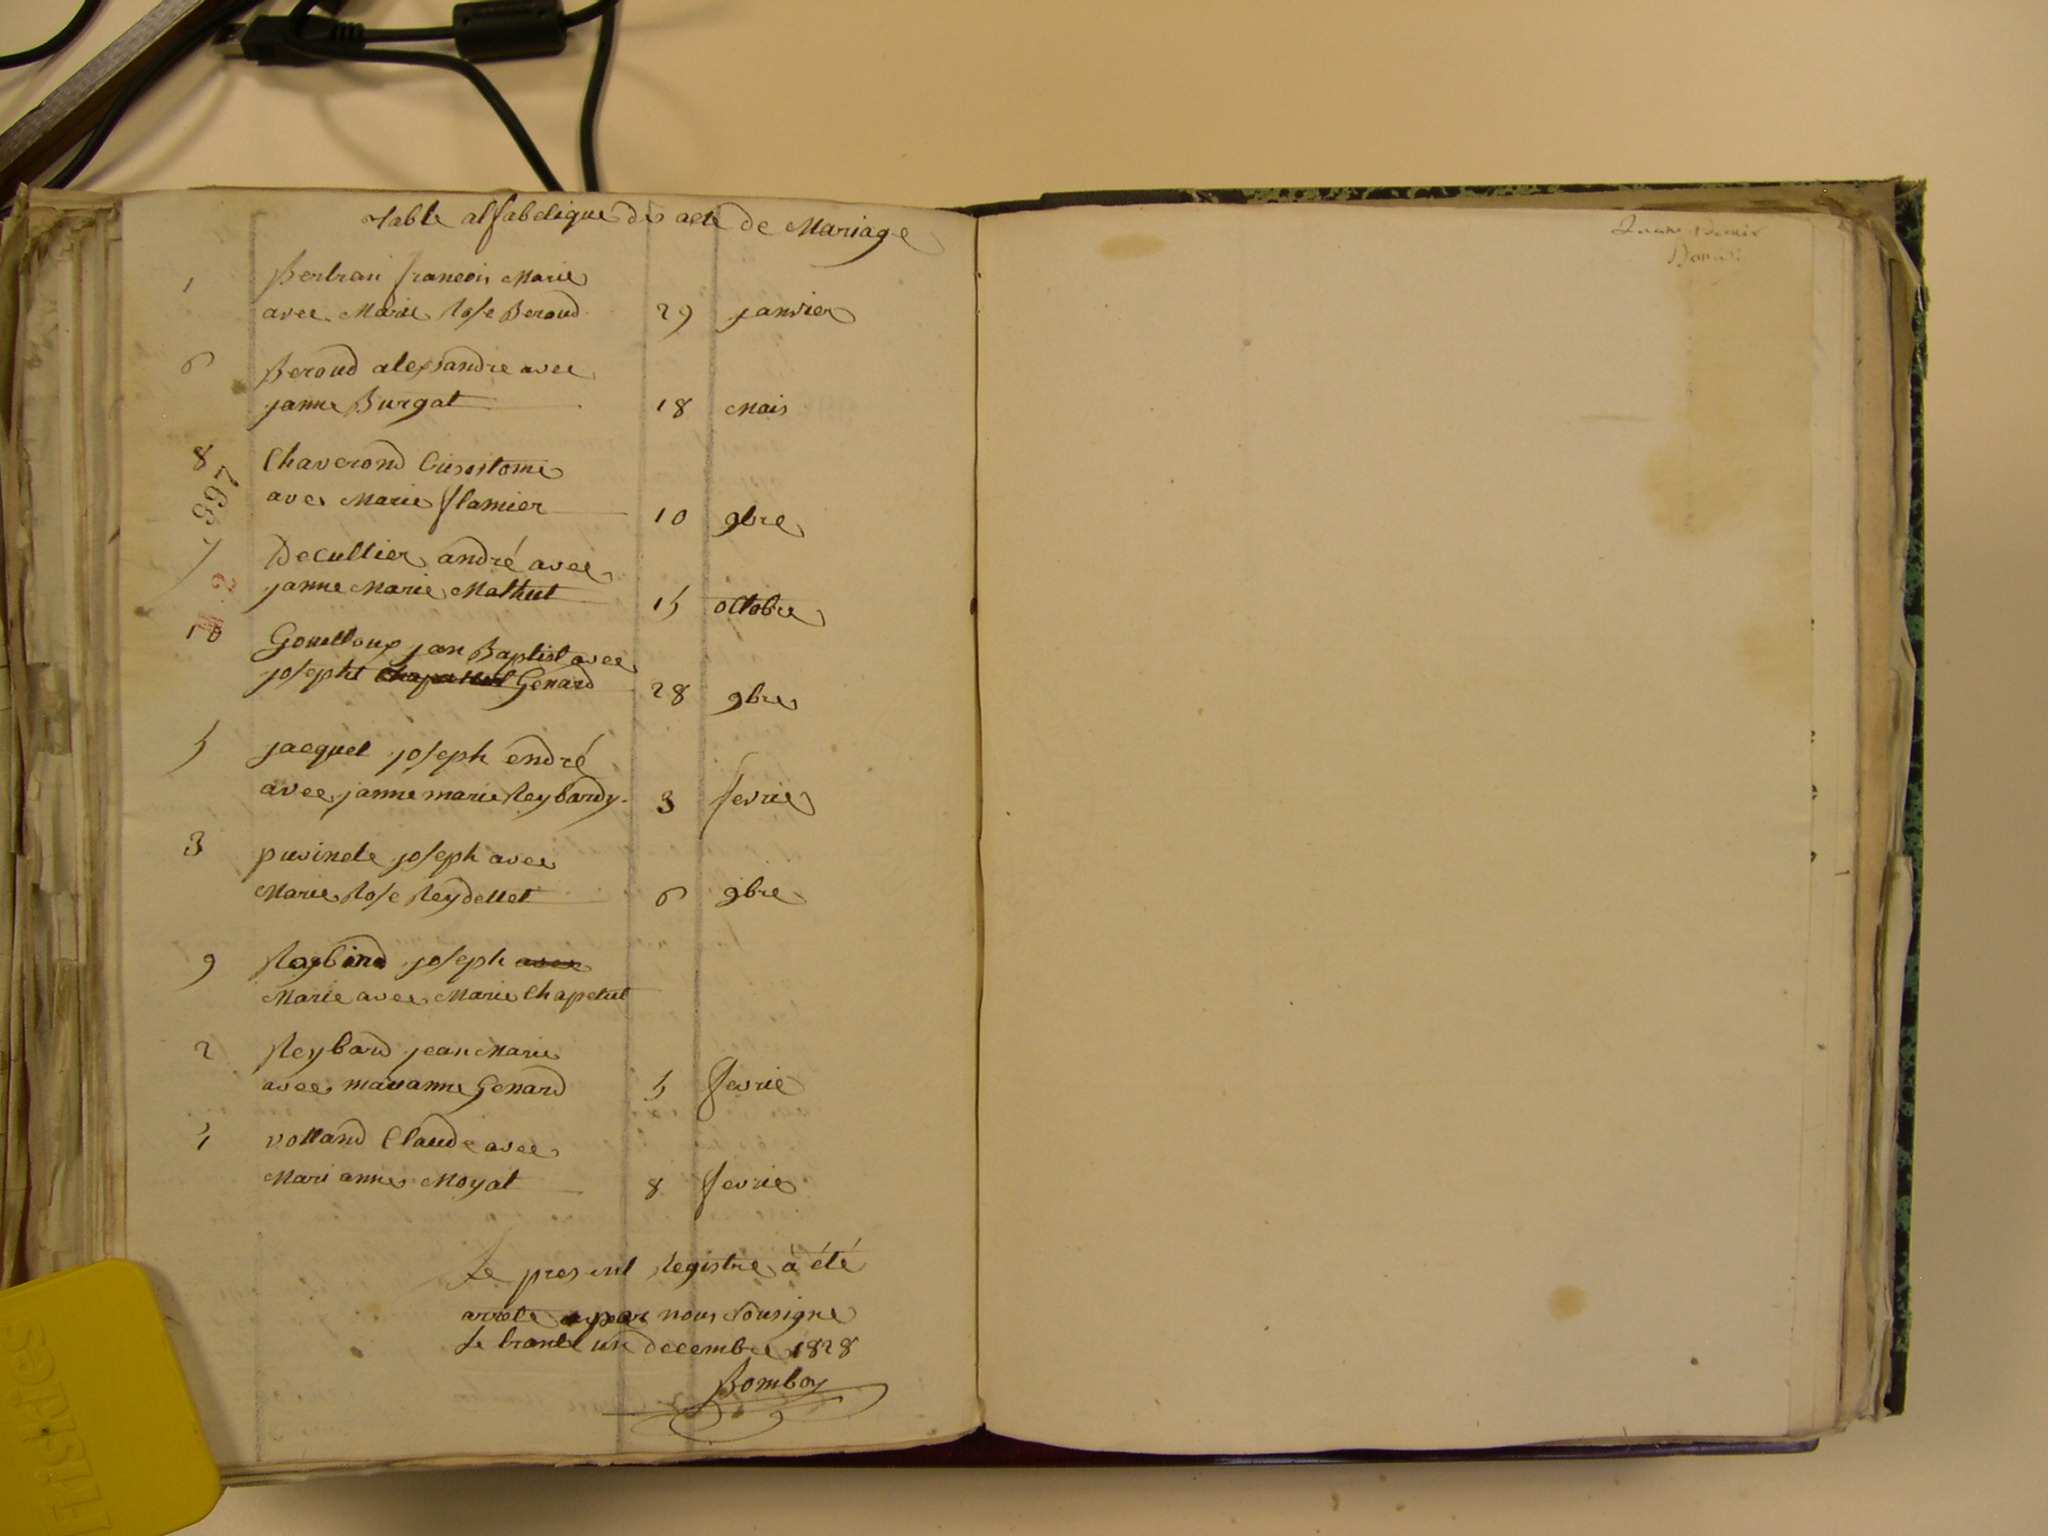 table alfabetique des acte de Mariage
1 Bertran francois Marie
avec Marie Rose Beroud 29 janvier
6 Beroud alexandre avec
janne Burgat 18 Mais
8 Chaverond Crisostome
avec Marie flamier 10 9bre
397
7 Decullier andré avec
janne Marie Mathut 15 octobre
2
10 Gouilloux jan Baptist avec
josepht Genard 28 9bre
5 jacquet joseph endré
avec janne marie Reybardy 3 fevrie
3 puvinele joseph avec
Marie Rose Reydellet 6 9bre
9 joseph avec
Marie avec Marie Chapelut
2 Reybard jean Marie
avec marianne Genard 5 fevrie
volland Claude avec
Mari anne Moyat 8 fevrie
Le present Registre à été
arrete par nous sousigne
Le trante un decembre 1828
Bomboy
HsldeS